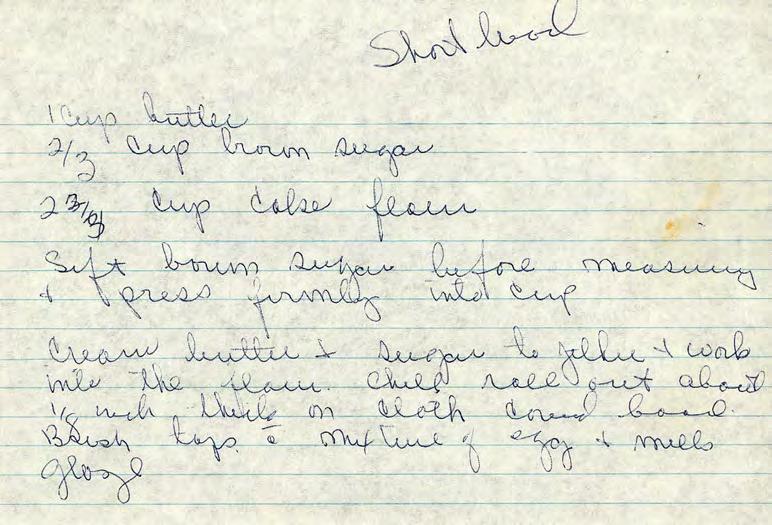 Short bread
1 cup butter
2/3 cup brown sugar
2 cup cake flour
Sift brown sugar before measuring
+ press firmly into cup
Cream butter + sugar to + work
into the flour. Chill roll out about
1/8 inch thick on cloth covered board.
Brush tops c mixture of egg + milk
glaze